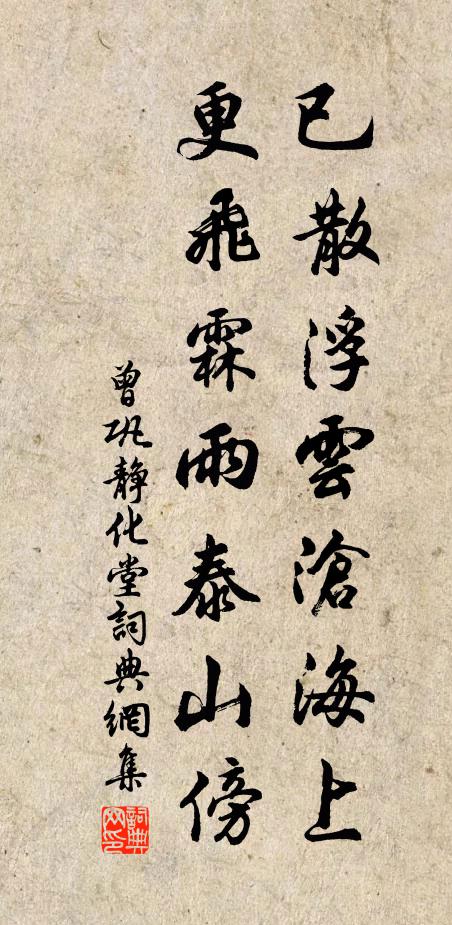 已散浮雲滄海上
更飛霖雨泰山傍
曾巩靜化堂詞典網集
詞典
网印